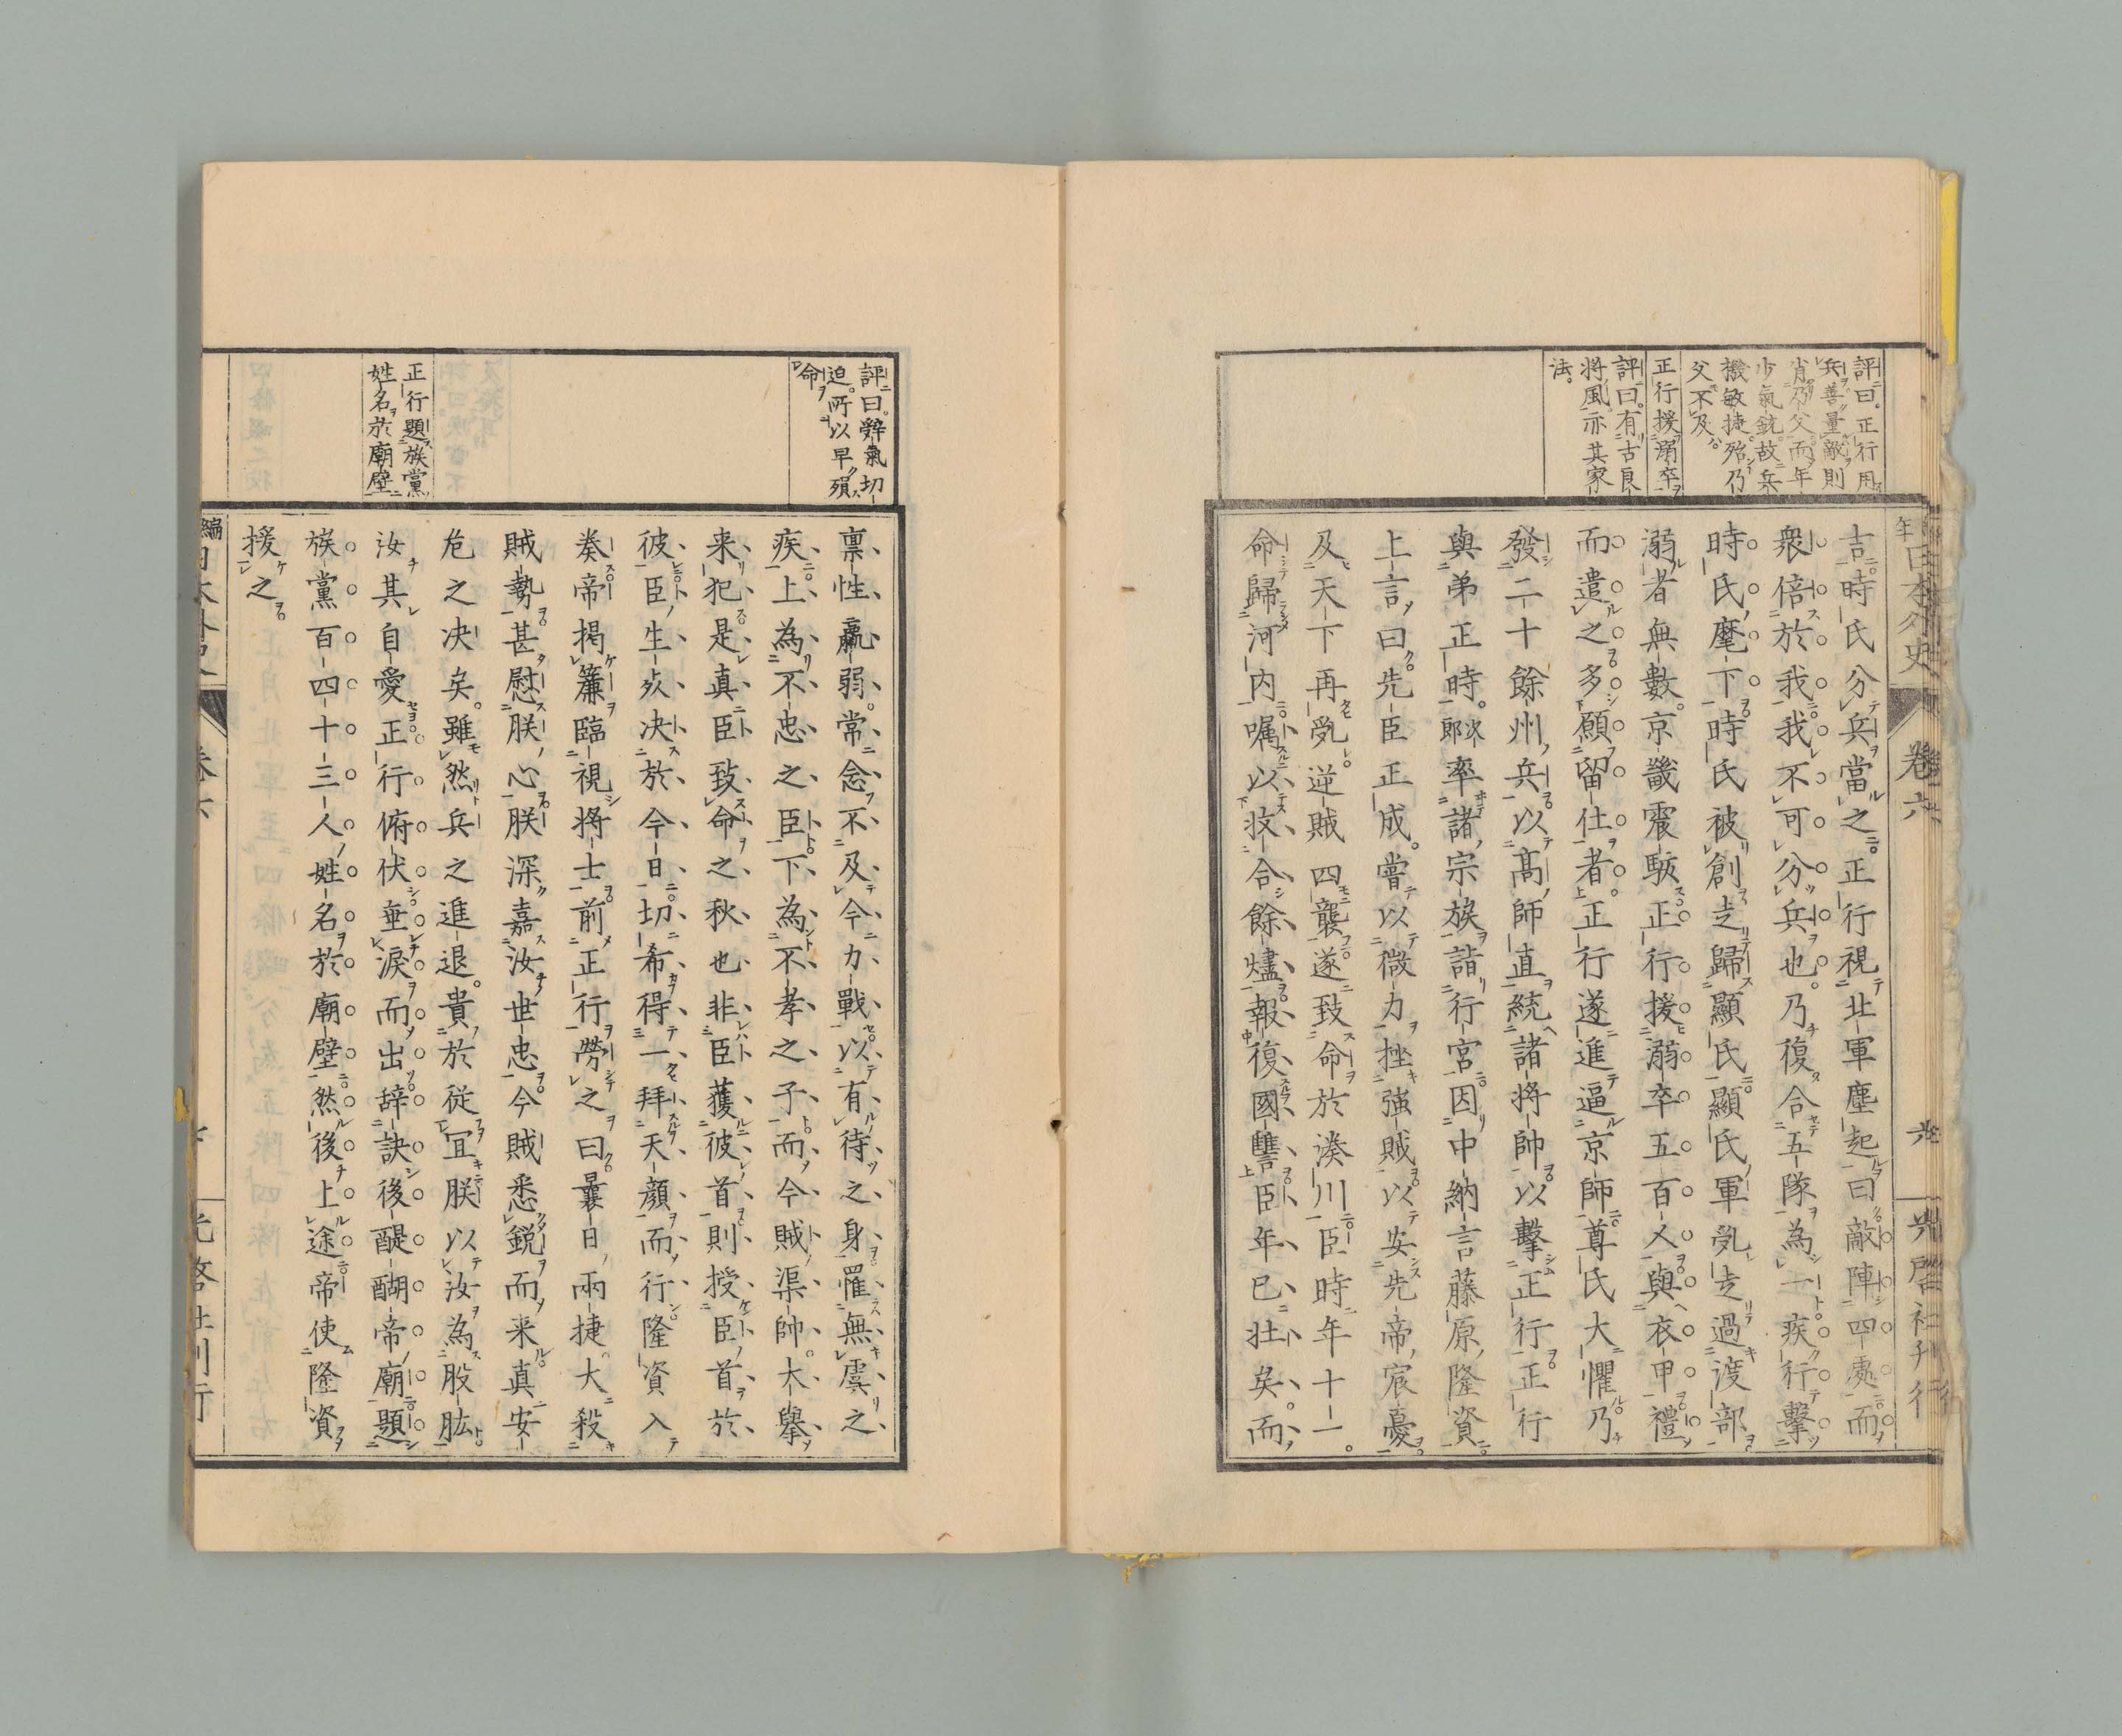 評曰。正行用
兵善量敵則
肖乃父而年
少氣銳故兵
機敏捷殆乃
父不及
正行援溺卒
評曰。有古良
將風亦其家
法。
日本外史
卷六
光啓社刊行
吉時氏分兵當之。正行視北軍塵起曰敵陣四處而
衆倍於我我不可分兵也。乃復合五隊為一疾行擊
時氏麾下時氏被創走歸顯氏顯氏軍乱走過渡部
溺者無數。京畿震駭正行援溺卒五百人與衣甲禮
而遣之多願留仕者。正行遂進逼京師尊氏大懼乃
發二十餘州兵以髙師直統諸將帥以擊正行正行
與弟正時。次郎率諸宗族詣行宮因中納言藤原隆資
上言曰先臣正成。嘗以微力挫強賊以安先帝宸憂
及天下再乱逆賊四襲遂致命於湊川臣時年十一。
命歸河内囑以收合餘燼報復國讐臣年已壯矣。而
評曰。辭氣切
迫。所以早殞
命
正行題族黨
姓名於廟壁
稟性羸弱。常念不及今力戰以有待之身罹無虞之
疾上為不忠之臣下為不孝之子而今賊渠帥大擧
来犯是真臣致命之秋也非臣獲彼首則授臣首於
彼臣生死决於今日切希得一拜天顔而行隆資入
奏帝揭簾臨視將士前正行勞之曰曩日兩捷大殺
賊勢甚慰朕心朕深嘉汝世忠今賊悉銳而来真安
危之决矣。雖然兵之進退。貴於従宜朕以汝為股肱
汝其自愛正行俯伏垂淚而出辞訣後醍醐帝廟題
族黨百四十三人姓名於廟壁然後上途帝使隆資
援之